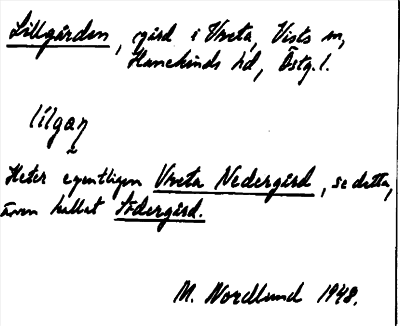 Lillgården, gård i Vreta, Vists sn,
Hanekinds hd, Östg. l.
lilgaɳ
Heter egentligen Vreta Nedergård, se detta,
även kallat Södergård.
M. Nordlund 1948.